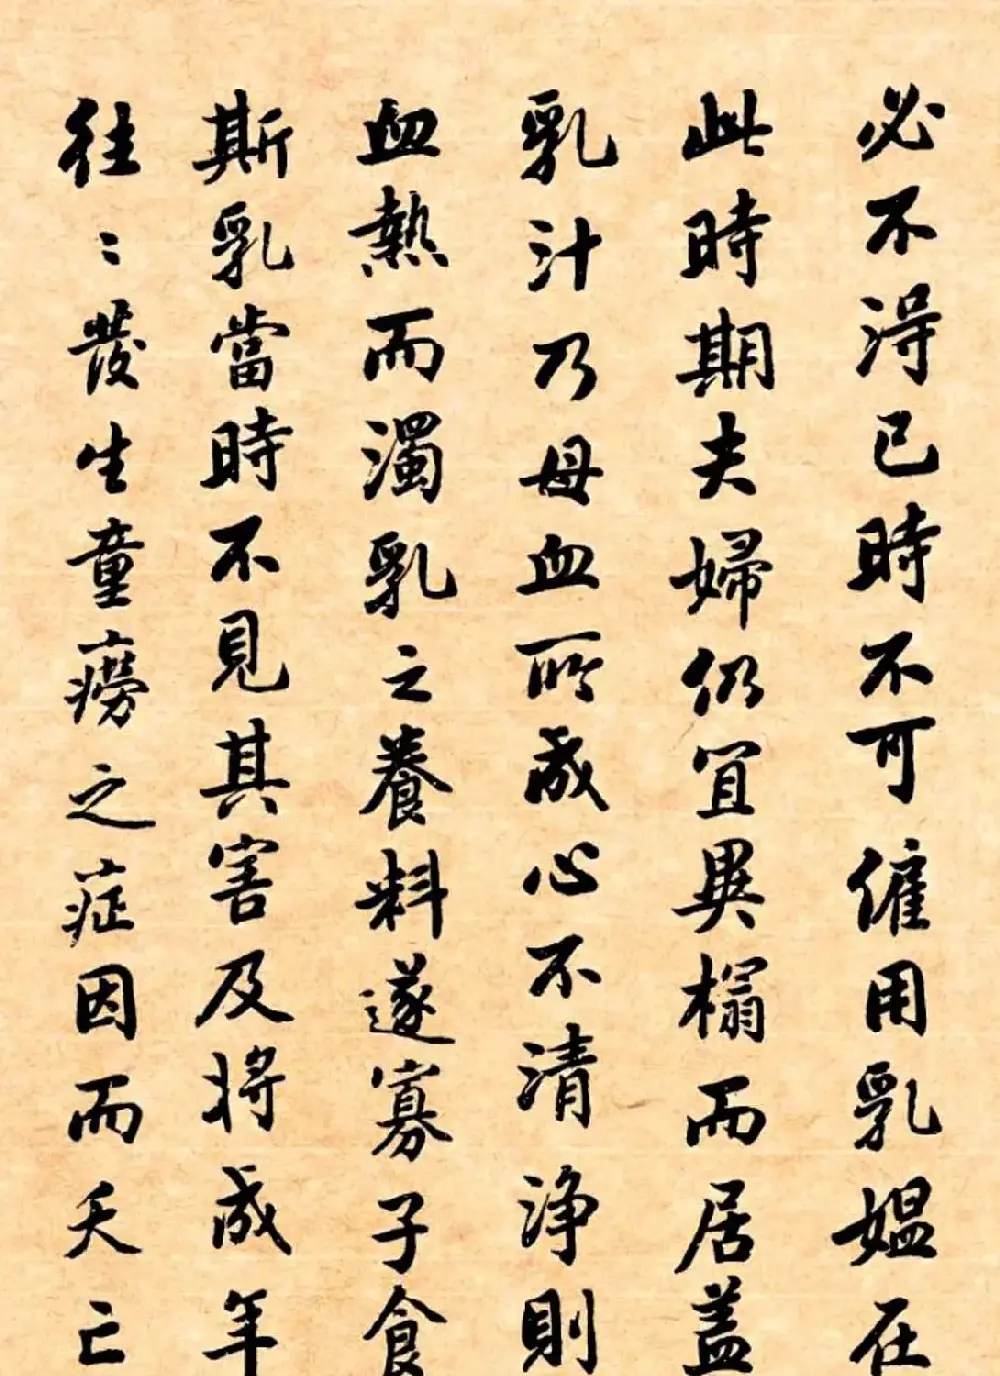 必不得已時不可僱用乳媼在
此時期夫婦仍宜異榻而居蓋
乳汁乃母血所成心不清淨則
血熱而濁乳之養料遂寡子食
斯乳當時不見其害及將成年
往〻發生童癆之症因而夭亡